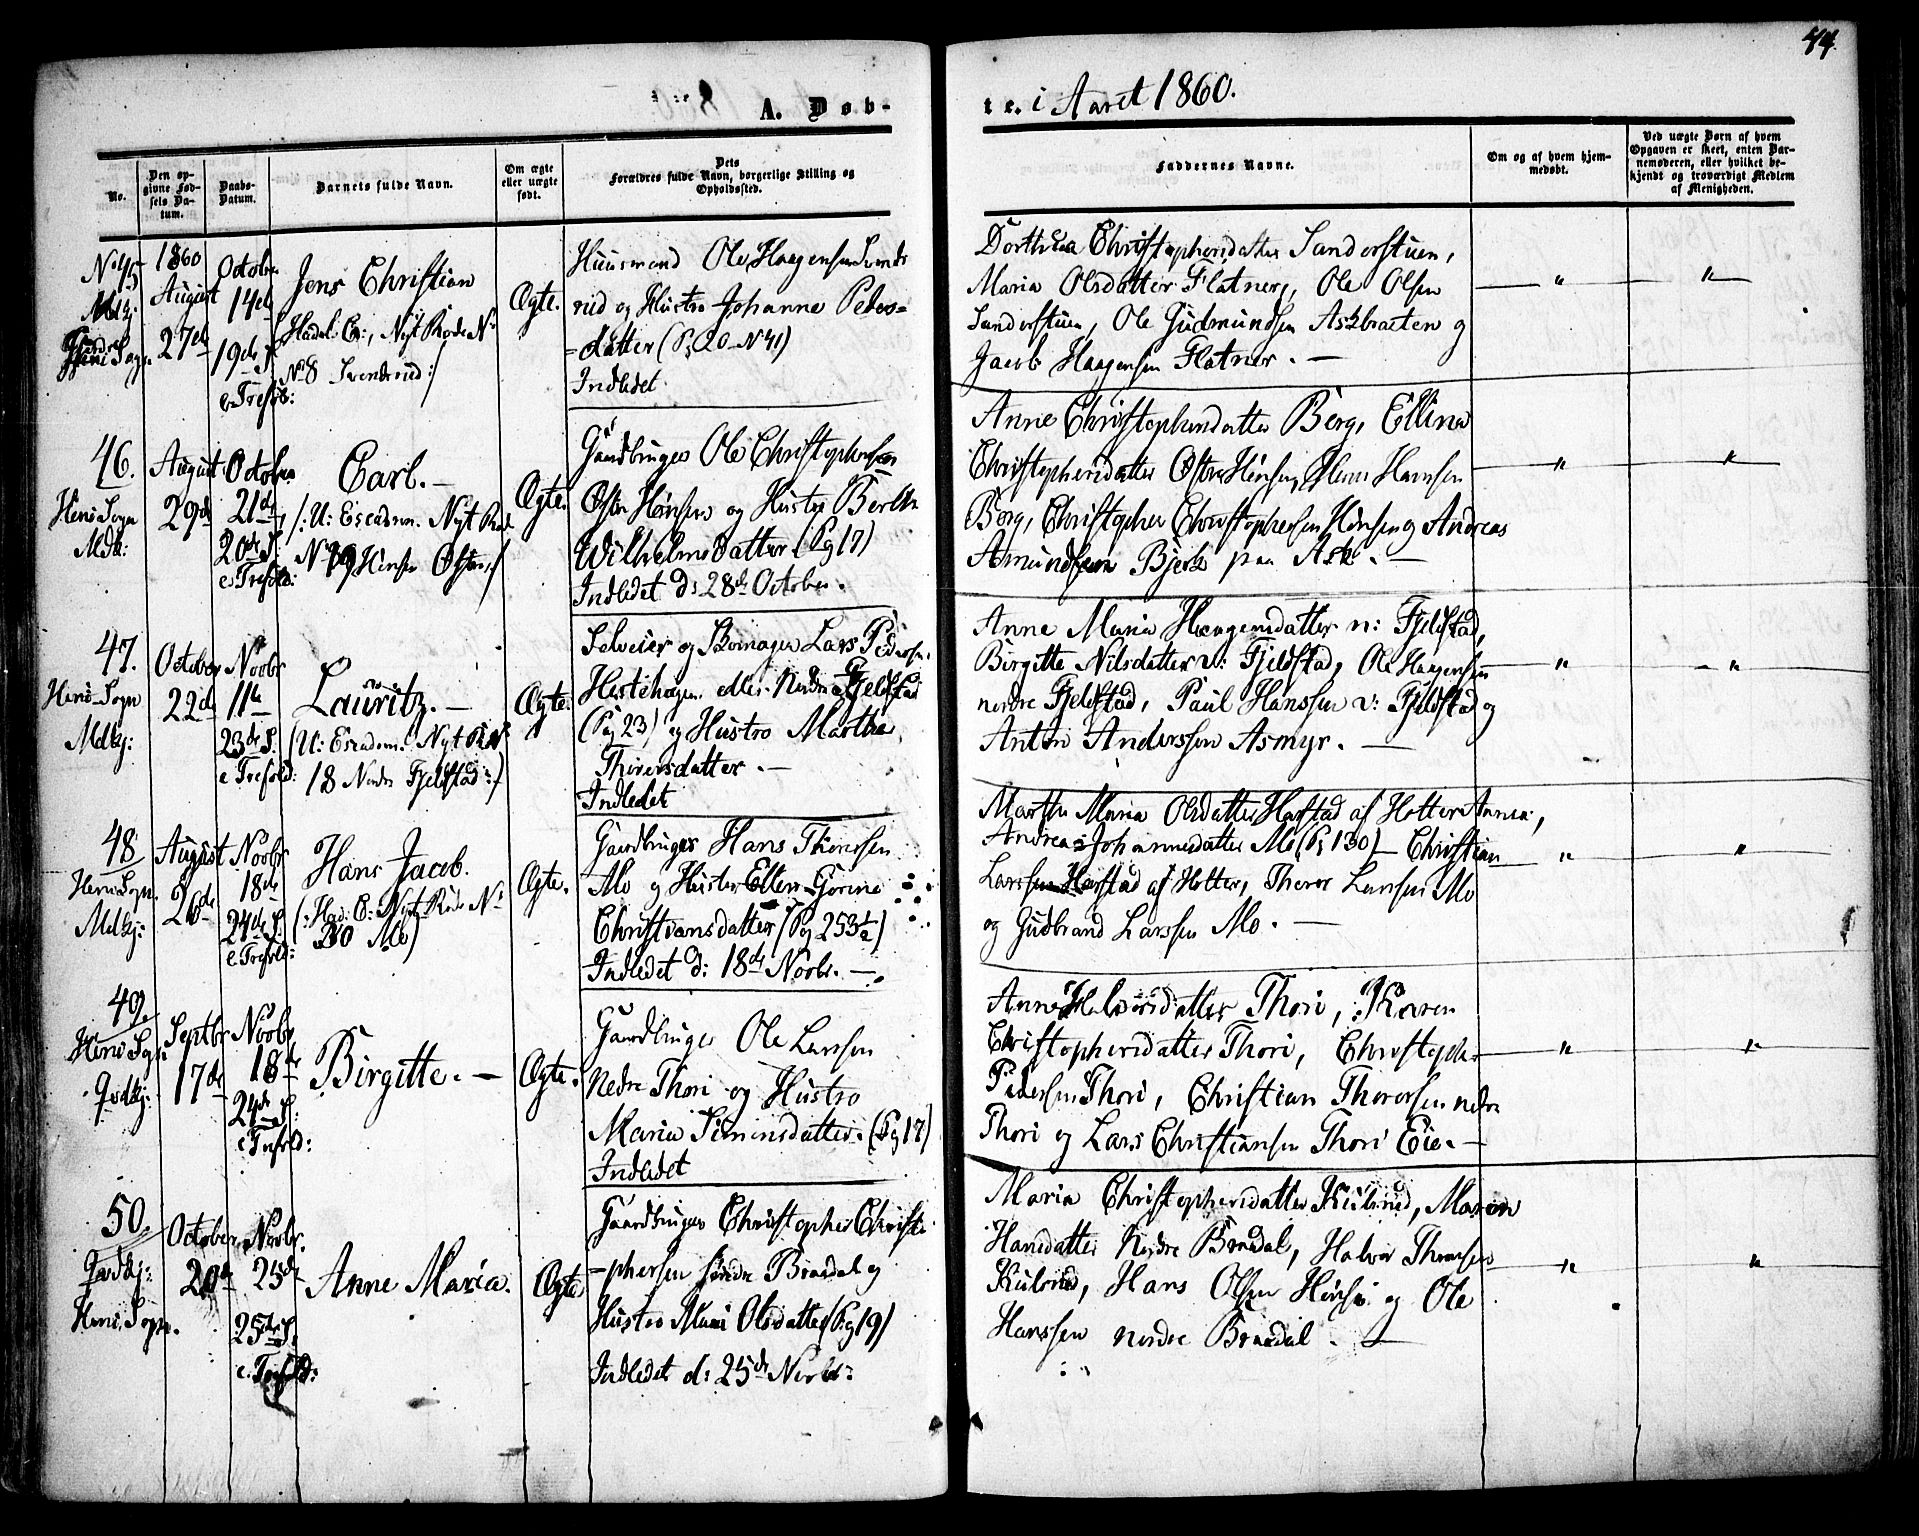 44
A. Døb-
te. i Aaret 1860.
No.
Den op-
givne Fød-
sels Da-
tum.
Daabs-
Datum.
Barnets fulde Navn.
Om ægte
eller uægte
født.
Dets
Forældres fulde Navn, borgerlige Stilling og
Opholdssted.
Faddernes Navne.
Om og af hvem hjem-
medøbt.
Ved uægte Børn af hvem
Opgaven er skeet, enten Bar-
nemoderen, eller hvilket be-
kjendt og troværdigt Medlem
af Menigheden.
No 45
Mdkj:
Sogn
1860
August
27de
Octobr
14de
19de S.
e. Trefold:
Jens Christian
No 8 Svendsrud :/
Ægte.
Huusmand Ole Haagensen Svends
rud og Hustro Johanne Peders-
=datter (Pg 20 - N 41)
Indledet
Dorthea Christophersdatter Sanderstuen,
Maria Olsdatter Flatner, Ole Olsen
Sanderstuen, Ole Gudmundsen Askbraaten og
Jacob Haagensen Flatner. —
— " —
— " —
46.
Heni Sogn
Mdkj:
August
29de
October
21de
20de S.
e. Trefold:
Carl. —
/: U: Escadron. Nyt Rode
No 19 Hønsen Østre :/
Ægte.
Gaardbruger Ole Christophersen
Østre Hønsen og Hustro Berthe
Wilhelmsdatter (Pg 17)
Indledet d: 28de October.
Anne Christophersdatter Berg, Elline
Christophersdatter Østre Hønsen, Hans Hanssen
Berg, Christopher Christophersen Hønsen og Andreas
Amundsen Bjerk paa Ask. —
— " —
— " —
47.
Heni Sogn
Mdkj:
October
22de
Novbr
11te
23de S.
e. Trefold:
Lauritz. —
(U: Escadron. Nyt Rode No
18 Nordre Fjeldstad :/)
Ægte.
Selveier og Skomager Lars Pedersen
Hestehagen eller Nedre Fjeldstad
(Pg 23) og Hustro Marthe
Thorersdatter. —
Indledet
Anne Maria Haagensdatter n: Fjeldstad,
Birgitte Nilsdatter v: Fjeldstad, Ole Haagensen
nerdre Fjeldstad, Paul Hanssen v: Fjeldstad og
Anton Anderssen Asmyr. —
— " —
— " —
48.
Heni Sogn.
Mdkj:
August
26de
Novbr
18de
24de S.
e. Trefold:
Hans Jacob.
(: Had: C: Nyt Rode No
20 Mo)
Ægte.
Gaardbruger Hans Thorersen
Mo og Hustro Ellen Gorine
Christiansdatter (Pg 253 ½)
Indledet d: 18de Novbr. —
Marthe Maria Olsdatter Harstad af Holter, Anne,
Andrea Johannesdatter Mo (Pg 130) — Christian
Larssen Harstad af Holter, Thorer Larssen Mo
og Gudbrand Larssen Mo. —
— " —
— " —
49.
Heni Sogn
Qvdkj:
Septbr
17de
Novbr
18de
24de S.
e. Trefold:
Birgitte. —
Ægte.
Gaardbruger Ole Larssen
Nedre Thori og Hustro
Maria Simensdatter. (Pg 17)
Indledet
Anne Halvorsdatter Thori, Karen
Christophersdatter Thori, Christopher
Pedersen Thori, Christian Thorersen nedre
Thori og Lars Christiansen Thori Eie. —
— " —
— " —
50.
Qvdkj:
Heni Sogn.
October
20de
Novbr.
25de
25de S.
e. Trefold:
Anne Maria.
Ægte
Gaardbruger Christopher Christo-
-phersen søndre Braadal og
Hustro Mari Olsdatter (Pg 19)
Indledet d: 25de Novbr:
Maria Christophersdatter Kulsrud, Maren
Hansdatter Nordre Braadal, Halvor Thoresen
Kulsrud, Hans Olsen Hønsi og Ole
Hanssen nordre Braadal. —
— " —
— " —